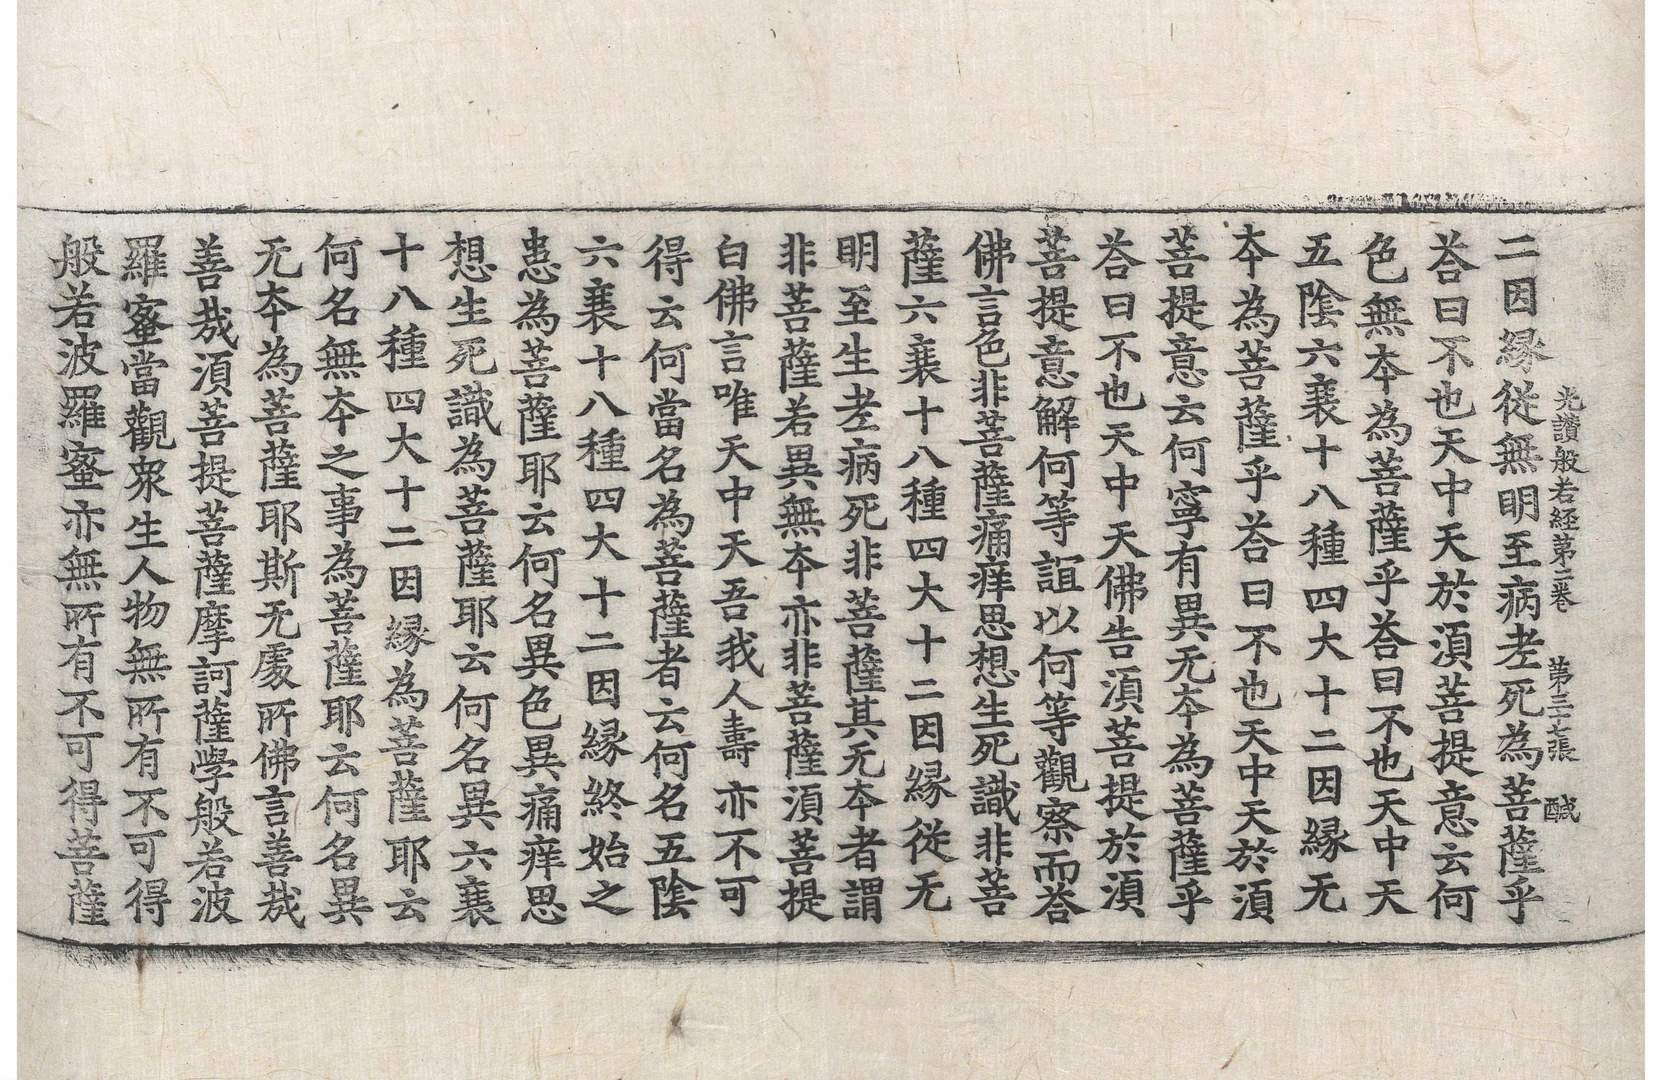 光讃般若経第二巻　第三十七張　醎
二因縁從無明至病老死為菩薩乎
荅曰不也天中天於湏菩提意云何
色無夲為菩薩乎荅曰不也天中天
五隂六衰十八種四大十二因縁无
夲為菩薩乎荅曰不也天中天於湏
菩提意云何寧有異无夲為菩薩乎
荅曰不也天中天佛告湏菩提於湏
菩提意解何等誼以何等觀察而荅
佛言色非菩薩痛痒思想生死識非菩
薩六衰十八種四大十二因縁從无
明至生老病死非菩薩其无夲者謂
非菩薩若異無夲亦非菩薩湏菩提
白佛言唯天中天吾我人壽亦不可
得云何當名為菩薩者云何名五隂
六衰十八種四大十二因縁終始之
患為菩薩耶云何名異色異痛痒思
想生死識為菩薩耶云何名異六衰
十八種四大十二因縁為菩薩耶云
何名無夲之事為菩薩耶云何名異
无夲為菩薩耶斯无處所佛言善哉
善哉湏菩提菩薩摩訶薩學般若波
羅蜜當觀衆生人物無所有不可得
般若波羅蜜亦無所有不可得菩薩